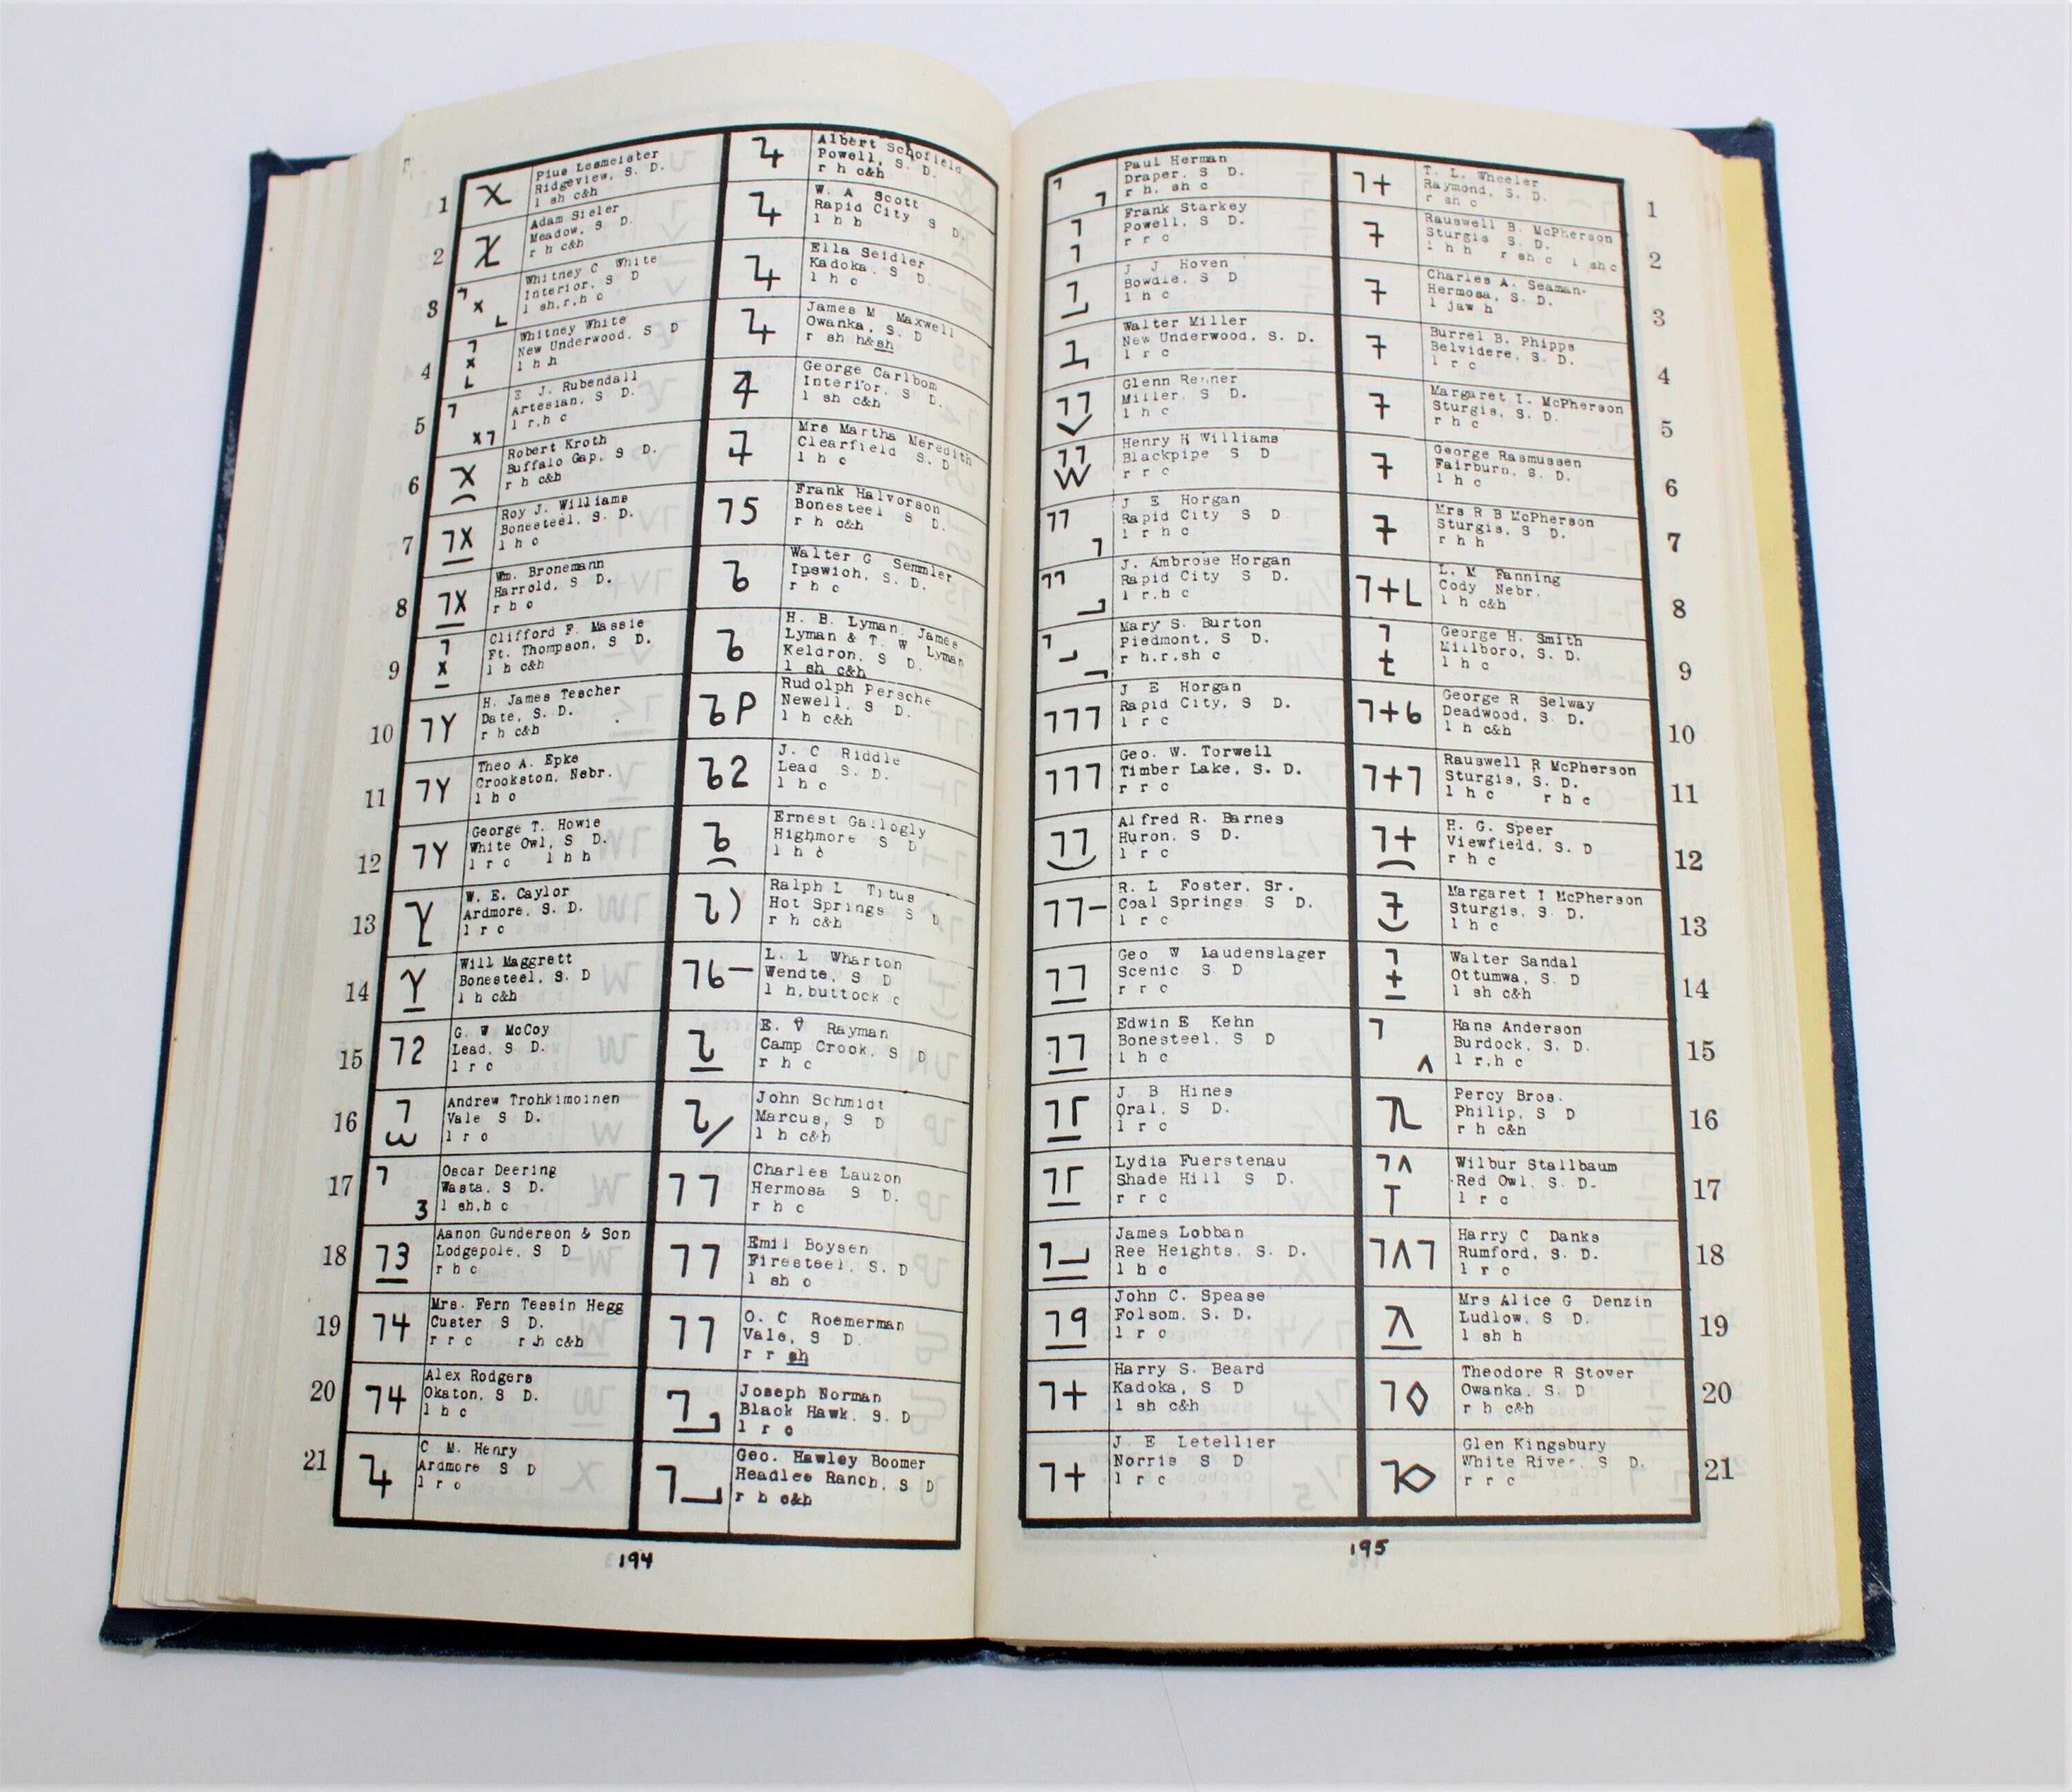 1
Pius Lesmeister
Ridgeview, S. D.
l sh c&h
2
Adam Sieler
Meadow, S D.
r h c&h
3
Whitney C White
Interior, S D
l sh,r,h c
4
Whitney White
New Underwood, S D
l h h
5
E J. Rubendall
Artesian, S D.
l r,h c
6
Robert Kroth
Buffalo Gap, S D.
r h c&h
7
7X
Roy J. Williams
Bonesteel, S. D.
l h c
8
7X
Wm. Bronemann
Harrold, S D.
r h c
9
7
x
Clifford F. Massie
Ft. Thompson, S D.
l h c&h
10
7Y
H. James Tescher
Date, S. D.
r h c&h
11
7Y
Theo A. Epke
Crookston, Nebr.
l h c
12
7Y
George T. Howie
White Owl, S D.
l r c l h h
13
W. E. Caylor
Ardmore, S. D.
l r c
14
Will Maggrett
Bonesteel, S. D
l h c&h
15
72
G. W McCoy
Lead, S D.
l r c
16
Andrew Trohkimoinen
Vale S D.
l r c
17
7
3
Oscar Deering
Wasta, S D.
l sh,h c
18
73
Aanon Gunderson & Son
Lodgepole, S D
r h c
19
74
Mrs. Fern Tessin Hegg
Custer S D.
r r c r h c&h
20
74
Alex Rodgers
Okaton, S D.
l h c
21
C M. Henry
Ardmore S D
l r c
Albert Schofield
Powell, S. D.
r h c&h
W. A Scott
Rapid City S D.
l h h
Ella Seidler
Kadoka, S D.
l h c
James M Maxwell
Owanka, S. D
r sh h&sh
George Carlbom
Interior, S D.
l sh c&h
Mrs Martha Meredith
Clearfield S. D
l h c
75
Frank Halvorson
Bonesteel S D.
r h c&h
Walter G Semmler
Ipswich, S. D.
r h c
H. B. Lyman, James
Lyman & T. W Lyman
Keldron, S D.
l sh c&h
Rudolph Persche
Newell, S D.
l h c&h
J. C Riddle
Lead S. D.
l h c
Ernest Gallogly
Highmore S D
l h c
Ralph L Titus
Hot Springs S D
r h c&h
76-
L. L Wharton
Wendte, S D
l h,buttock c
E. V Rayman
Camp Crook, S D
r h c
John Schmidt
Marcus, S D
l h c&h
77
Charles Lauzon
Hermosa S D.
r h c
77
Emil Boysen
Firesteel, S. D
l sh c
77
O. C Roemerman
Vale, S D.
r r sh
Joseph Norman
Black Hawk, S. D
l r c
Geo. Hawley Boomer
Headlee Ranch, S D
r h c&h
194
7
7
Paul Herman
Draper, S D.
r h, sh c
7
7
Frank Starkey
Powell, S D.
r r c
J J Hoven
Bowdle, S D
l h c
Walter Miller
New Underwood, S. D.
l r c
77
Glenn Renner
Miller, S D.
l h c
77
W
Henry H Williams
Blackpipe S D
r r c
77
7
J E Horgan
Rapid City S D
l r h c
77
J. Ambrose Horgan
Rapid City S D.
l r,h c
Mary S. Burton
Piedmont, S D.
r h,r,sh c
777
J E Horgan
Rapid City, S D.
l r c
777
Geo. W. Torwell
Timber Lake, S. D.
r r c
77
Alfred R. Barnes
Huron, S D.
l r c
77-
R. L Foster, Sr.
Coal Springs S D.
l r c
77
Geo W Laudenslager
Scenic S D
r r c
77
Edwin E Kehn
Bonesteel, S D
l h c
J B Hines
Oral, S D.
l r c
Lydia Fuerstenau
Shade Hill S D.
r r c
James Lobban
Ree Heights, S. D.
l h c
79
John C. Spease
Folsom, S. D.
l r c
7+
Harry S. Beard
Kadoka, S D
l sh c&h
7+
J. E Letellier
Norris S D
l r c
7+
T. L. Wheeler
Raymond, S. D.
r sh c
1
Rauswell B. McPherson
Sturgis S. D.
l h h r sh c l sh c
2
Charles A. Seaman-
Hermosa, S. D.
l jaw h
3
Burrel B. Phipps
Belvidere, S. D.
l r c
4
Margaret I. McPherson
Sturgis, S. D.
r h c
5
George Rasmussen
Fairburn, S. D.
l h c
6
Mrs R B McPherson
Sturgis, S D.
r h h
7
7+L
L. M Fanning
Cody Nebr.
l h c&h
8
George H. Smith
Millboro, S. D.
l h c
9
7+6
George R Selway
Deadwood, S D.
l h c&h
10
7+7
Rauswell R McPherson
Sturgis, S. D.
l h c r h c
11
7+
H. G. Speer
Viewfield, S. D
r h c
12
Margaret I McPherson
Sturgis, S. D.
l h c
13
7
+
Walter Sandal
Ottumwa, S. D
l sh c&h
14
Hans Anderson
Burdock, S. D.
l r,h c
15
Percy Bros.
Philip, S D
r h c&h
16
Wilbur Stallbaum
Red Owl, S. D.
l r c
17
7Λ7
Harry C Danks
Rumford, S. D.
l r c
18
Mrs Alice G Denzin
Ludlow, S. D.
l sh h
19
7◊
Theodore R Stover
Owanka, S. D
r h c&h
20
Glen Kingsbury
White River, S D.
r r c
21
195